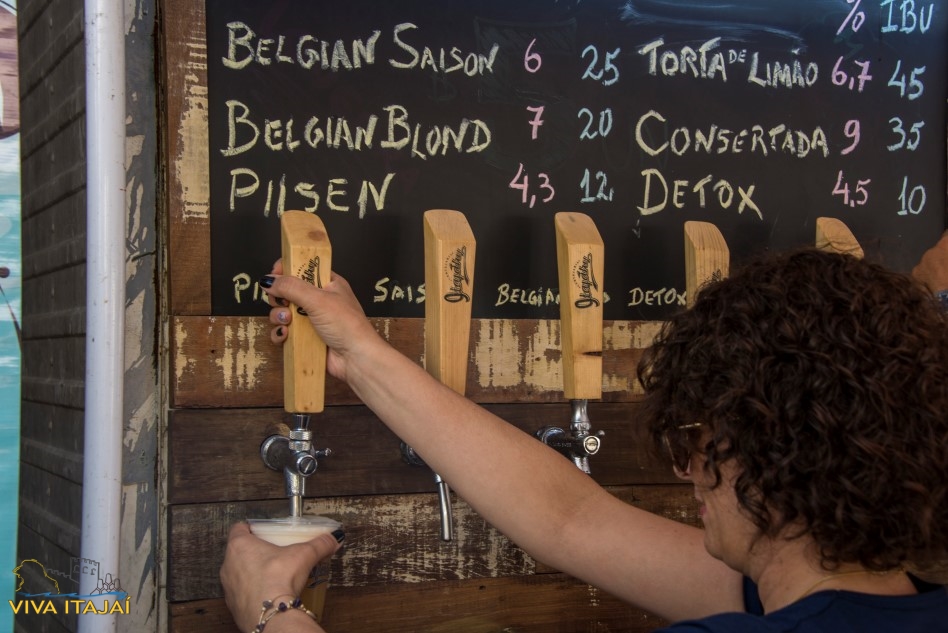 % IBU
BELGIAN SAISON 6 25
TORTA DE LIMÃO 6,7 45
BELGIAN BLOND 7 20
CONSERTADA 9 35
PILSEN 4,3 12
DETOX 4,5 10
SAIS
BELGIA
DETOX
VIVA ITAJAÍ